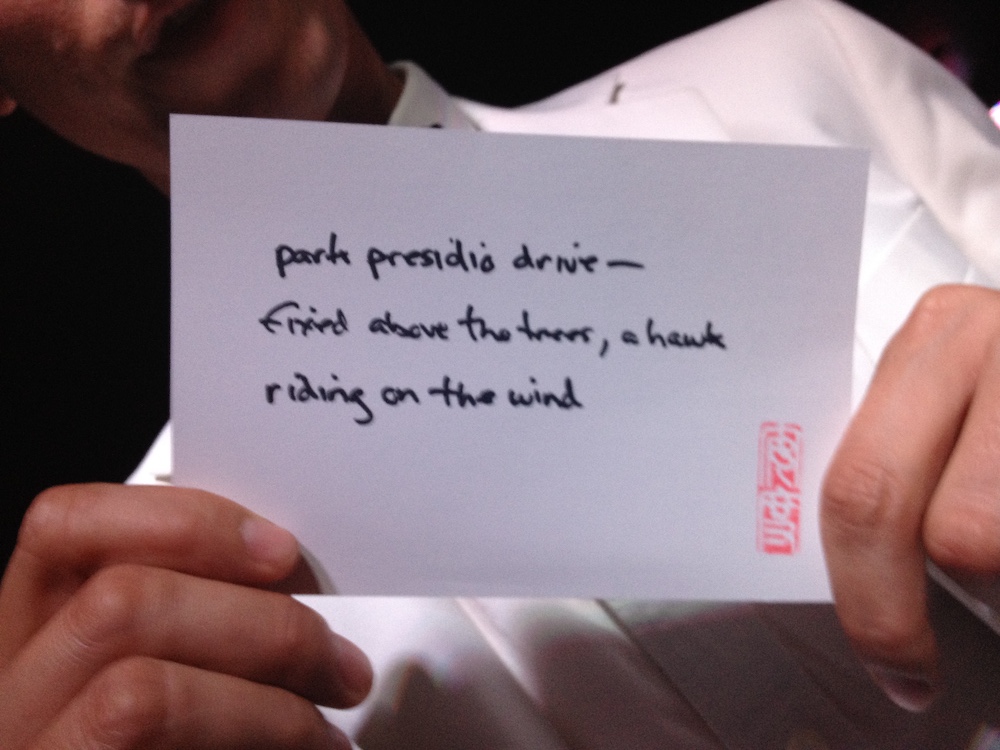 park presidio drive—
fixed above the trees, a hawk
riding on the wind